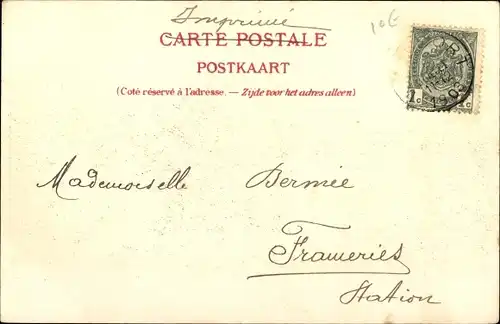 Imprimé
10€
CARTE POSTALE
POSTKAART
(Coté réservé à l'adresse. — Zijde voor het adres alleen)
1c
Mademoiselle Bermée
Frameries
Station